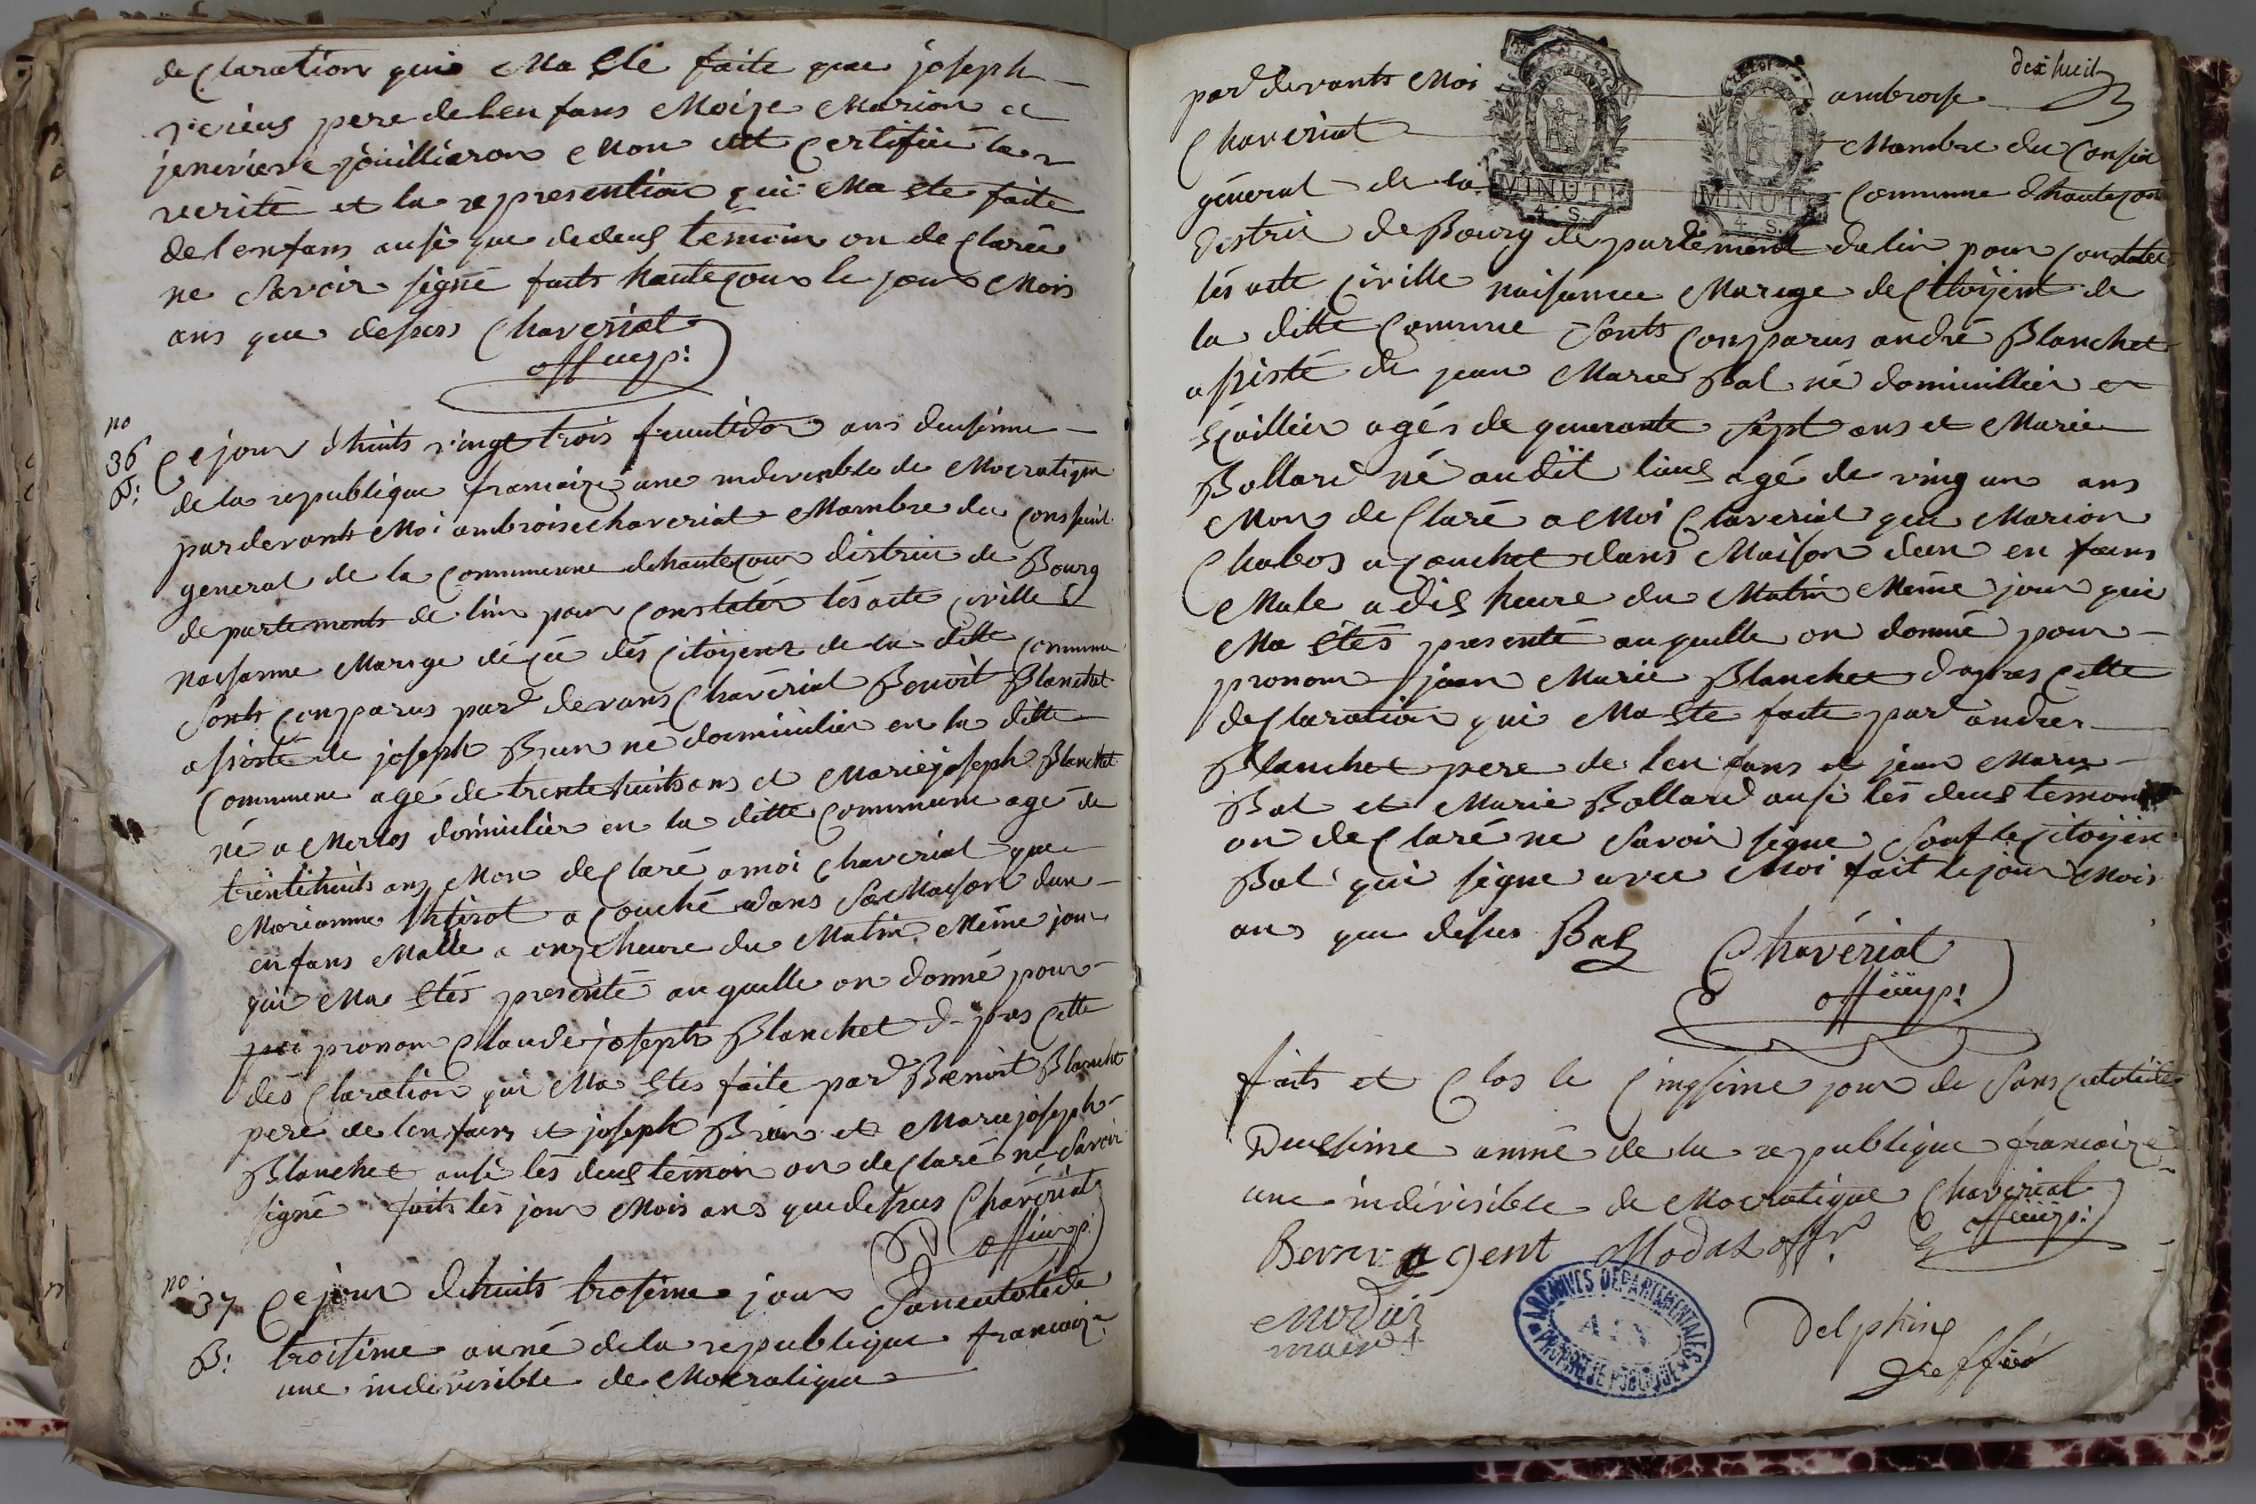 de Claration qui Ma Ete faite que joseph
pere de len fans Moize Marion et
jenevieve Mon ett Certifié la
verité et la represention qui Ma ete faite
de lenfans ausi que dedeus temoin on de Claré
ne Savoir signé faits hautecour le jour Mois
ans que desus Chaveriat
offi up:
no
36
B:
Ce jour dhuits vingt trois frucutidor ans deusieme
de la republique francaize une indivisible de Mocratique
par devants Moi ambroise chaveriat Mambre du Conseuil
general de la Communne dhautecour districe de Bourg
de partements de lin pour Constatér lés acte civille
naisanne Marige décée dés Citoyent de la ditte commune
Sonts Comparus par devans Chavériat Benoit Blanchet
asisté de joseph Brun né dominilier en la ditte
Commune agé de trente huits ans et Marie joseph Blanchet
né a Merlos dominilier en la ditte Commune agé de
trente huits ans Mon de Claré a moi Chaveriat que
Morianne a Couché dans Sa Maison dun
enfans Malle a onze heure du Matin Méme jour
qui Ma Etés presenté au quelle on donné pour
pronom Claude joseph Blanchet d pres Cette
dés Claration qui Ma Etes faite par Benoit Blanchet
pere de lenfans et joseph Brun et Marie joseph
Blanchet ausi lés deus témoin on de Claré ne Savoir
signé faits lés jour Mois ans que desus Chavériat
offi up:
no
37
B:
Ce jour dehuits trosieme jour Sancutotide
troisieme anné de la republique francaize
une indivisible de Mocratique
dix huit
par devants Moi ambroise
Chaveriat Mambre du Consei
géneral de la Commune dhautecour
MINUTE
4. S.
MINUTE
4. S.
Distric de Bourg de partement de lin pour Constater
lés acte Civille naisance Marige de Citoyent de
la ditte Comune Sonts Comparus andré Blanchet
asisté de jean Marie Bal né dominillier et
agés de quarante sept ans et Marie
Bollard né audit lieus agé de ving un ans
Mon de Claré a Moi Chaveriat que Marion
Chabos a couchet dans Maison dun en fans
Male a dis heure du Matin Méme jour qui
Ma Etés presenté au quelle on donné pour
pronom jean Marie Blanchet dapres Cette
de Claration qui Ma Ete faite par andre
Blanchet pere de len fans et jean Marie
Bal et Marie Bollard ausi lés deus temoin
on de Claré ne Savoir signe Souf le Citoyen
Bal qui signe avec Moi fait le jour Mois
ans que desus Bal Chavériat
offi up:
faits et Clos le Cinqsime jour de Sans
Deusime anné de la republique francaize
une indivisible de Mocratique Chaveriat
offi up:
agent Modas offr
maire
ARCHIVES DÉPARTEMENTALES
AIN
PROPRIÉTÉ PUBLIQUE
Delphin
Greffié